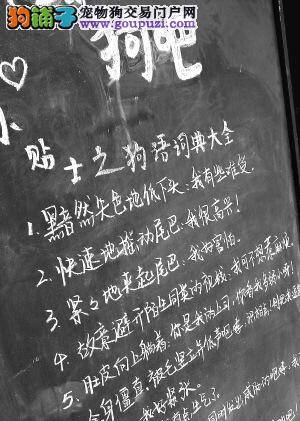 狗铺子
宠物狗交易门户网
www.goupuzi.com
狗吧
小
贴士之狗语词典大全
1.黯然失色地低下头:我有些难受.
2.快速地摇动尾巴:我很高兴!
3.紧紧地夹起尾巴:我好害怕.
4.故意避开陌生同类的视线:我可不想惹麻烦
5.肚皮向上躺着:你是我的上司,你看我多
全身僵直,被毛竖立并低声咆哮:
我好紧张.